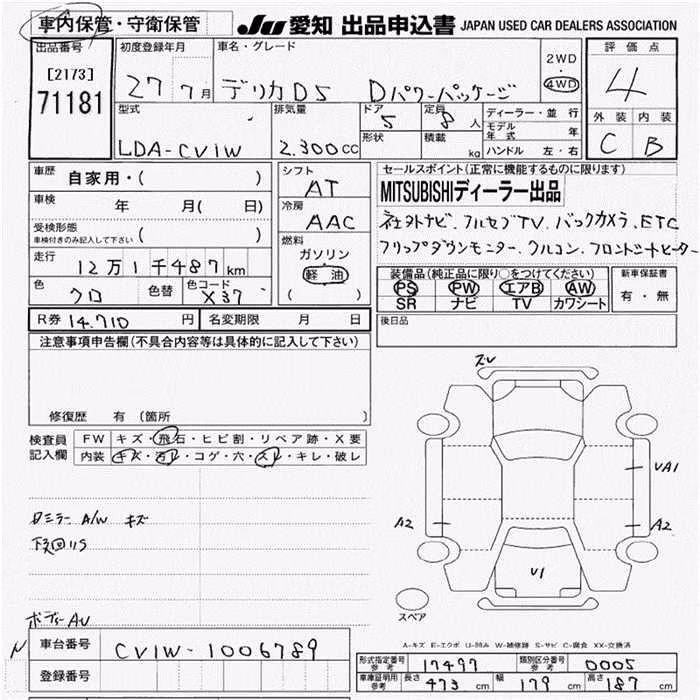 車内保管・守衛保管 JU 愛知 出品申込書 JAPAN USED CAR DEALERS ASSOCIATION
出品番号 初度登録年月 車名・グレード 評価点
[2173] 71181 27 7月 デリカD5 Dパワーパッケージ 2WD・4WD 4
型式 排気量 ドア 定員 ディーラー・並行 外装 内装
LDA-CV1W 2.300cc 5 8人 モデル年式 年 C B
形状 積載 kg ハンドル 左・右
車歴 自家用・( ) シフト AT セールスポイント(正常に機能するものに限ります)
車検 年 月( 日) 冷房 AAC MITSUBISHIディーラー出品
受検形態 車検付きのみ記入して下さい ( ) 燃料 ガソリン 軽油 ( )
社外ナビ、フルセグTV、バックカメラ、ETC
フリップダウンモニター、クルコン、フロントシートヒーター
走行 12万1千487km
色 クロ 色替 色コード X37
装備品(純正品に限り○をつけてください) 新車保証書
PS PW エアB AW 有・無
SR ナビ TV カワシート
R券 14.710円 名変期限 月 日 後日品
注意事項申告欄(不具合内容等は具体的に記入して下さい)
修復歴 有(箇所 )
検査員記入欄 FW キズ・飛石・ヒビ割・リペア跡・X要
内装 キズ・汚レ・コゲ・穴・スレ・キレ・破レ
ズレ
UA1
A2 A2
V1
スペア
ロミラー A/W キズ
下廻りS
ボディーAU
A-キズ E-エクボ U-凹み W-補修跡 S-サビ C-腐食 XX-交換済
車台番号 CV1W-1006789
登録番号
形式指定番号 参考 17497 類別区分番号 参考 0005
車庫証明用 参考 長さ 473cm 幅 179cm 高さ 187cm